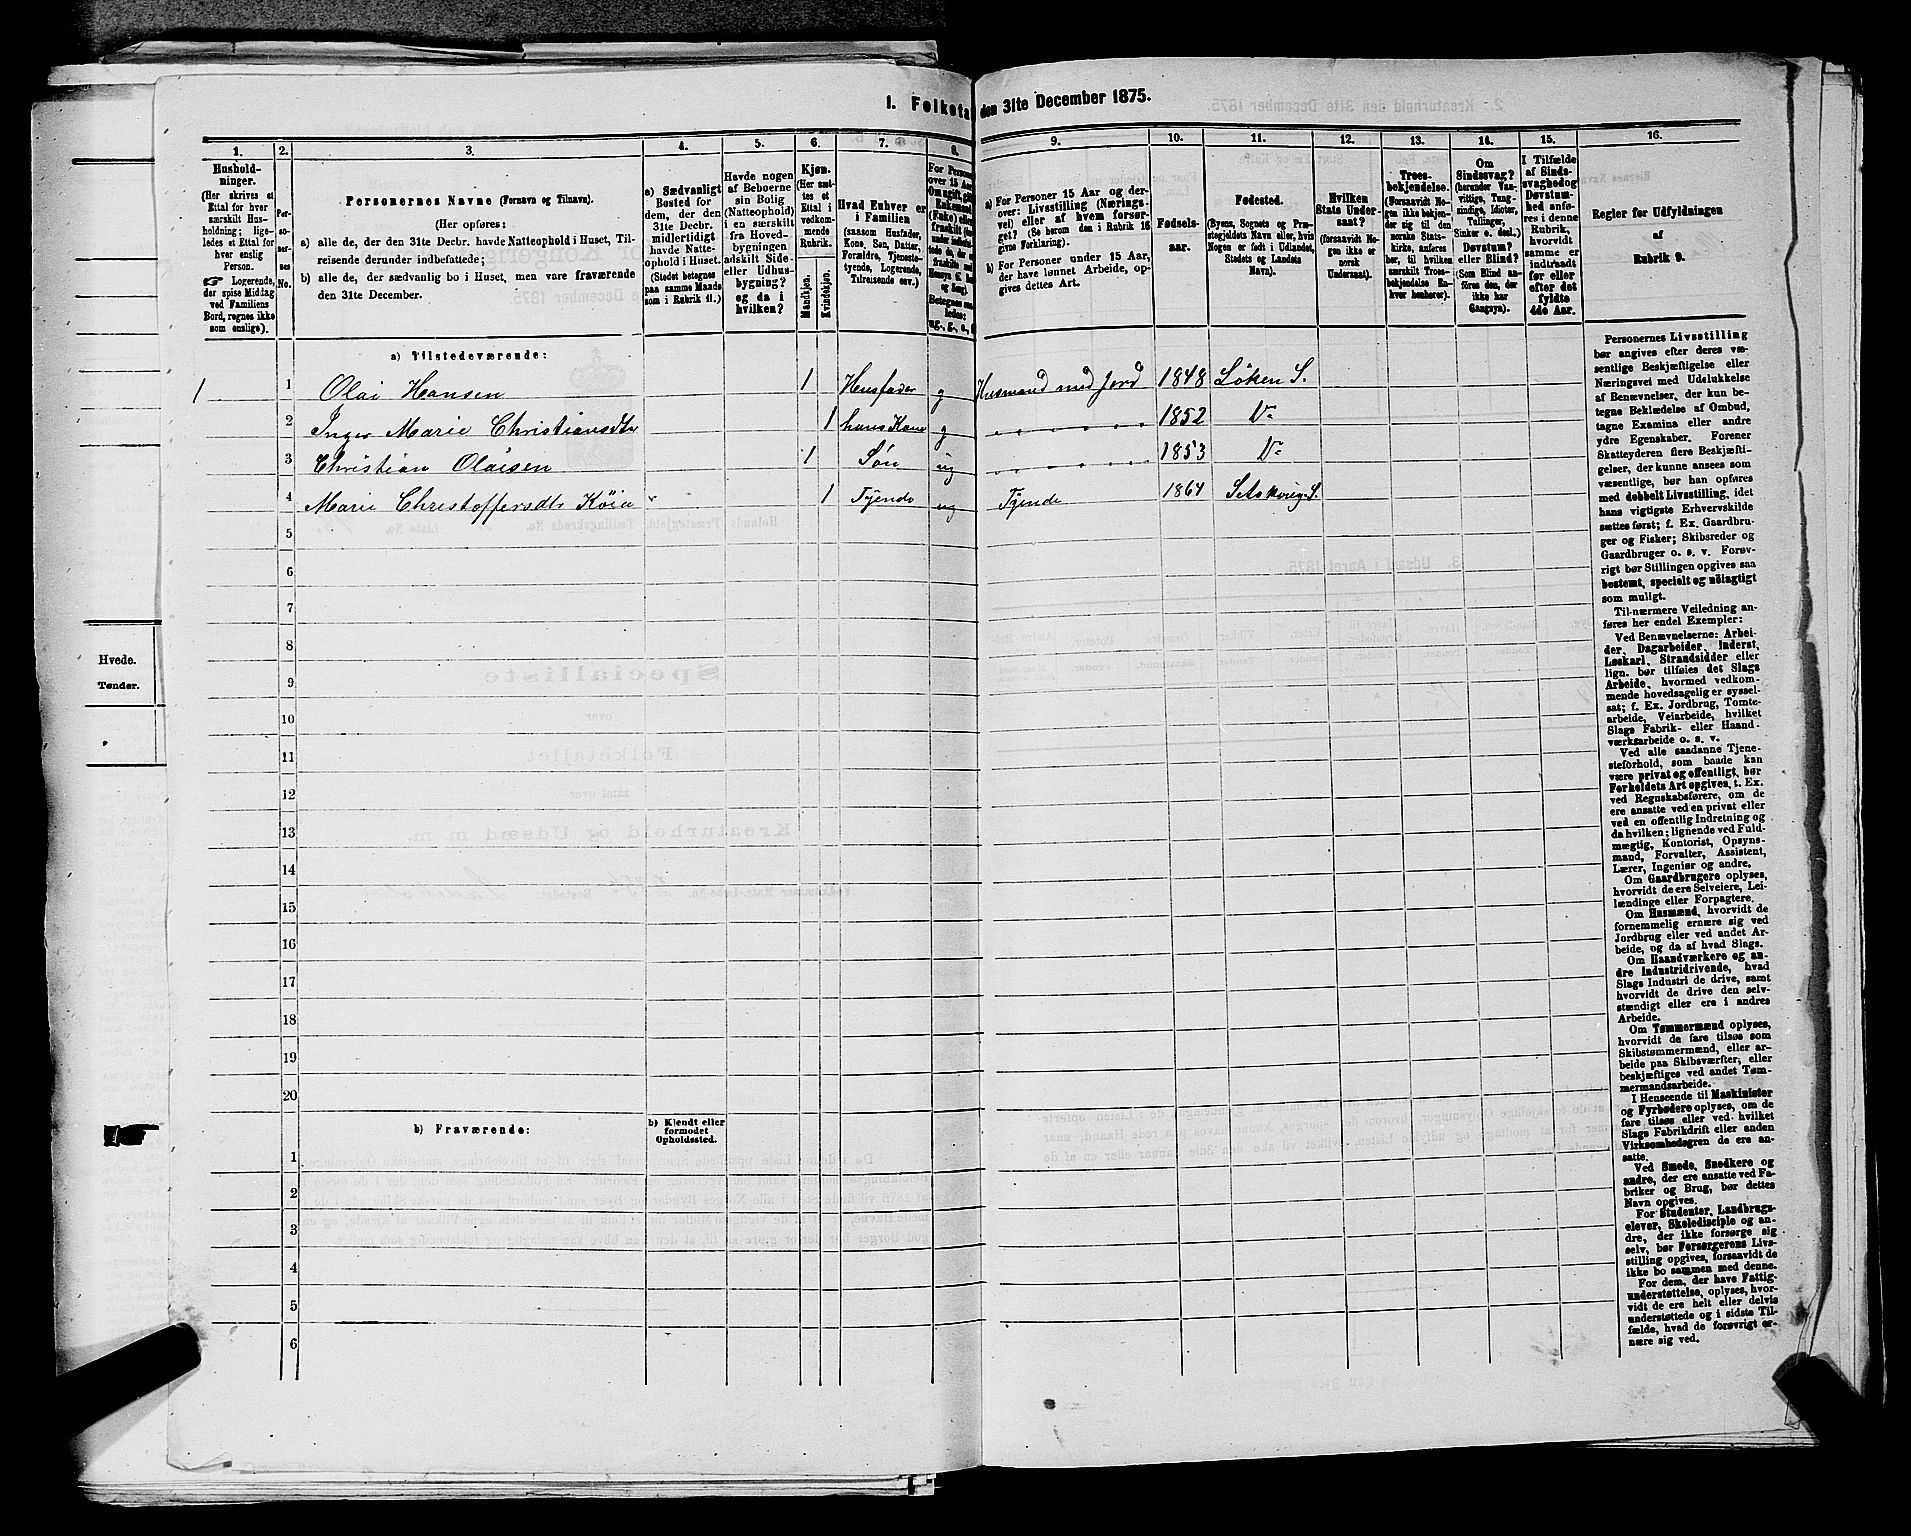 1. Folketa
den 31te December 1875.
1.
2.
3.
4.
5.
6.
7.
8.
9.
10.
11.
12.
13.
14.
15.
16.
Hushold-
ninger.
(Her skrives et
Ettal for hver
særskilt Hus-
holdning; lige-
ledes et Ettal for
hver enslig
Person.
☞ Logerende,
der spise Middag
ved Familiens
Bord, regnes ikke
som enslige).
Per-
so-
ner-
nes
No.
Personernes Navne (Fornavn og Tilnavn).
(Her opføres:
a) alle de, der den 31te Decbr. havde Natteophold i Huset, Til-
reisende derunder indbefattede;
b) alle de, der sædvanlig bo i Huset, men vare fraværende
den 31te December.
a) Sædvanligt
Bosted for
dem, der den
31te Decbr.
midlertidigt
havde Natte-
ophold i Huset.
(Stedet betegnes
paa samme Maade
som i Rubrik 11.)
Havde nogen
af Beboerne
sin Bolig
(Natteophold)
i en særskilt
fra Hoved-
bygningen
adskilt Side-
eller Udhus-
bygning?
og da i
hvilken?
Kjøn.
(Her sæt-
tes et
Ettal i
vedkom-
mende
Rubrik.
Mandkjøn.
Kvindekjøn.
Hvad Enhver er
i Familien
(saasom Husfader,
Kone, Søn, Datter,
Forældre, Tjeneste-
tyende, Logerende,
Tilreisende osv.)
a) For Personer 15 Aar og der-
over: Livsstilling (Nærings-
vei) eller af hvem forsør-
get? (Se herom den i Rubrik 16
givne Forklaring).
b) For Personer under 15 Aar,
der have lønnet Arbeide, op-
gives dettes Art.
Fødsels-
aar.
Fødested.
(Byens, Sognets og Præ-
stegjeldets Navn eller, hvis
Nogen er født i Udlandet,
Stedets og Landets
Navn).
Hvilken
Stats Under-
saat?
(forsaavidt No-
gen ikke er
norsk
Undersaat).
Troes-
bekjendelse.
(Forsaavidt No-
gen ikke bekjen-
der sig til den
norske Stats-
kirke, anføres
her, til hvilken
særskilt Troes-
bekjendelse En-
hver henhører).
Om
Sindssvag?
(herunder Van-
vittige, Tung-
sindige, Idioter,
Tullinger,
Sinker o. desl.)
Døvstum?
eller Blind?
(Som Blind an-
føres den, der
ikke har
Gangsyn).
I Tilfælde
af Sinds-
svaghed og
Døvstum-
hed anfø-
res i denne
Rubrik,
hvorvidt
samme er
indtraadt
før eller
efter det
fyldte
4de Aar.
Regler for Udfyldningen
af
Rubrik 9.
a) Tilstedeværende:
1 1 Olai Hansen 1 Husfader g Husmand med Jord 1848 Löken S.
2 Inger Marie Christiansdtr 1 hans Kone g 1852 Do
3 Christian Olaisen 1 Søn ug 1853 Do
4 Marie Christoffersdtr Köia 1 Tyende ug Tyende 1864 Setskoug S.
5
6
7
8
9
10
11
12
13
14
15
16
17
18
19
20
b) Fraværende:
b) Kjendt eller
formodet
Opholdssted.
1
2
3
4
5
6
Personernes Livsstilling
bør angives efter deres væ-
sentlige Beskjæftigelse eller
Næringsvei med Udelukkelse
af Benævnelser, der kun be-
tegne Beklædelse af Ombud,
tagne Examina eller andre
ydre Egenskaber. Forener
Skatteyderen flere Beskjæfti-
gelser, der kunne ansees som
væsentlige, bør han opføres
med dobbelt Livsstilling, idet
hans vigtigste Erhvervskilde
sættes først; f. Ex. Gaardbru-
ger og Fisker; Skibsreder og
Gaardbruger o. s. v. Forøv-
rigt bør Stillingen opgives saa
bestemt, specielt og nøiagtigt
som muligt.
Til nærmere Veiledning an-
føres her endel Exempler:
Ved Benævnelserne: Arbei-
der, Dagarbeider, Inderst,
Løskarl, Strandsidder eller
lign. bør tilføies det Slags
Arbeide, hvormed vedkom-
mende hovedsagelig er syssel-
sat; f. Ex. Jordbrug, Tomte-
arbeide, Veiarbeide, hvilket
Slags Fabrik- eller Haand-
værksarbeide o. s. v.
Ved alle saadanne Tjene-
steforhold, som baade kan
være privat og offentligt, bør
Forholdets Art opgives, t. Ex.
ved Regnskabsførere, om de
ere ansatte ved en privat eller
ved en offentlig Indretning og
da hvilken; lignende ved Fuld-
mægtig, Kontorist, Opsyns-
mand, Forvalter, Assistent,
Lærer, Ingeniør og andre.
Om Gaardbrugere oplyses,
hvorvidt de ere Selveiere, Lei-
lændinge eller Forpagtere.
Om Husmænd, hvorvidt de
fornemmelig ernære sig ved
Jordbrug eller ved andet Ar-
beide, og da af hvad Slags.
Om Haandværkere og an-
dre Industridrivende, hvad
Slags Industri de drive, samt
hvorvidt de drive den selv-
stændigt eller ere i andres
Arbeide.
Om Tømmermænd oplyses,
hvorvidt de fare tilsøs som
Skibstømmermænd, eller ar-
beide paa Skibsværfter, eller
beskjæftiges ved andet Tøm-
mermandsarbeide.
I Henseende til Maskinister
og Fyrbødere oplyses, om de
fare tilsøs eller ved hvilket
Slags Fabrikdrift eller anden
Virksomhedsgren de ere an-
satte.
Ved Smede, Snedkere og
andre, der ere ansatte ved Fa-
briker og Brug, bør dettes
Navn opgives.
For Studenter, Landbrugs-
elever, Skoledisciple og an-
dre, der ikke forsørge sig
selv, bør Forsørgerens Livs-
stilling opgives, forsaavidt de
ikke bo sammen med denne.
For dem, der have Fattig-
understøttelse, oplyses, hvor-
vidt de ere helt eller delvis
understøttede og i sidste Til-
fælde, hvad de forøvrigt er-
nære sig ved.
Hvede.
Tønder.